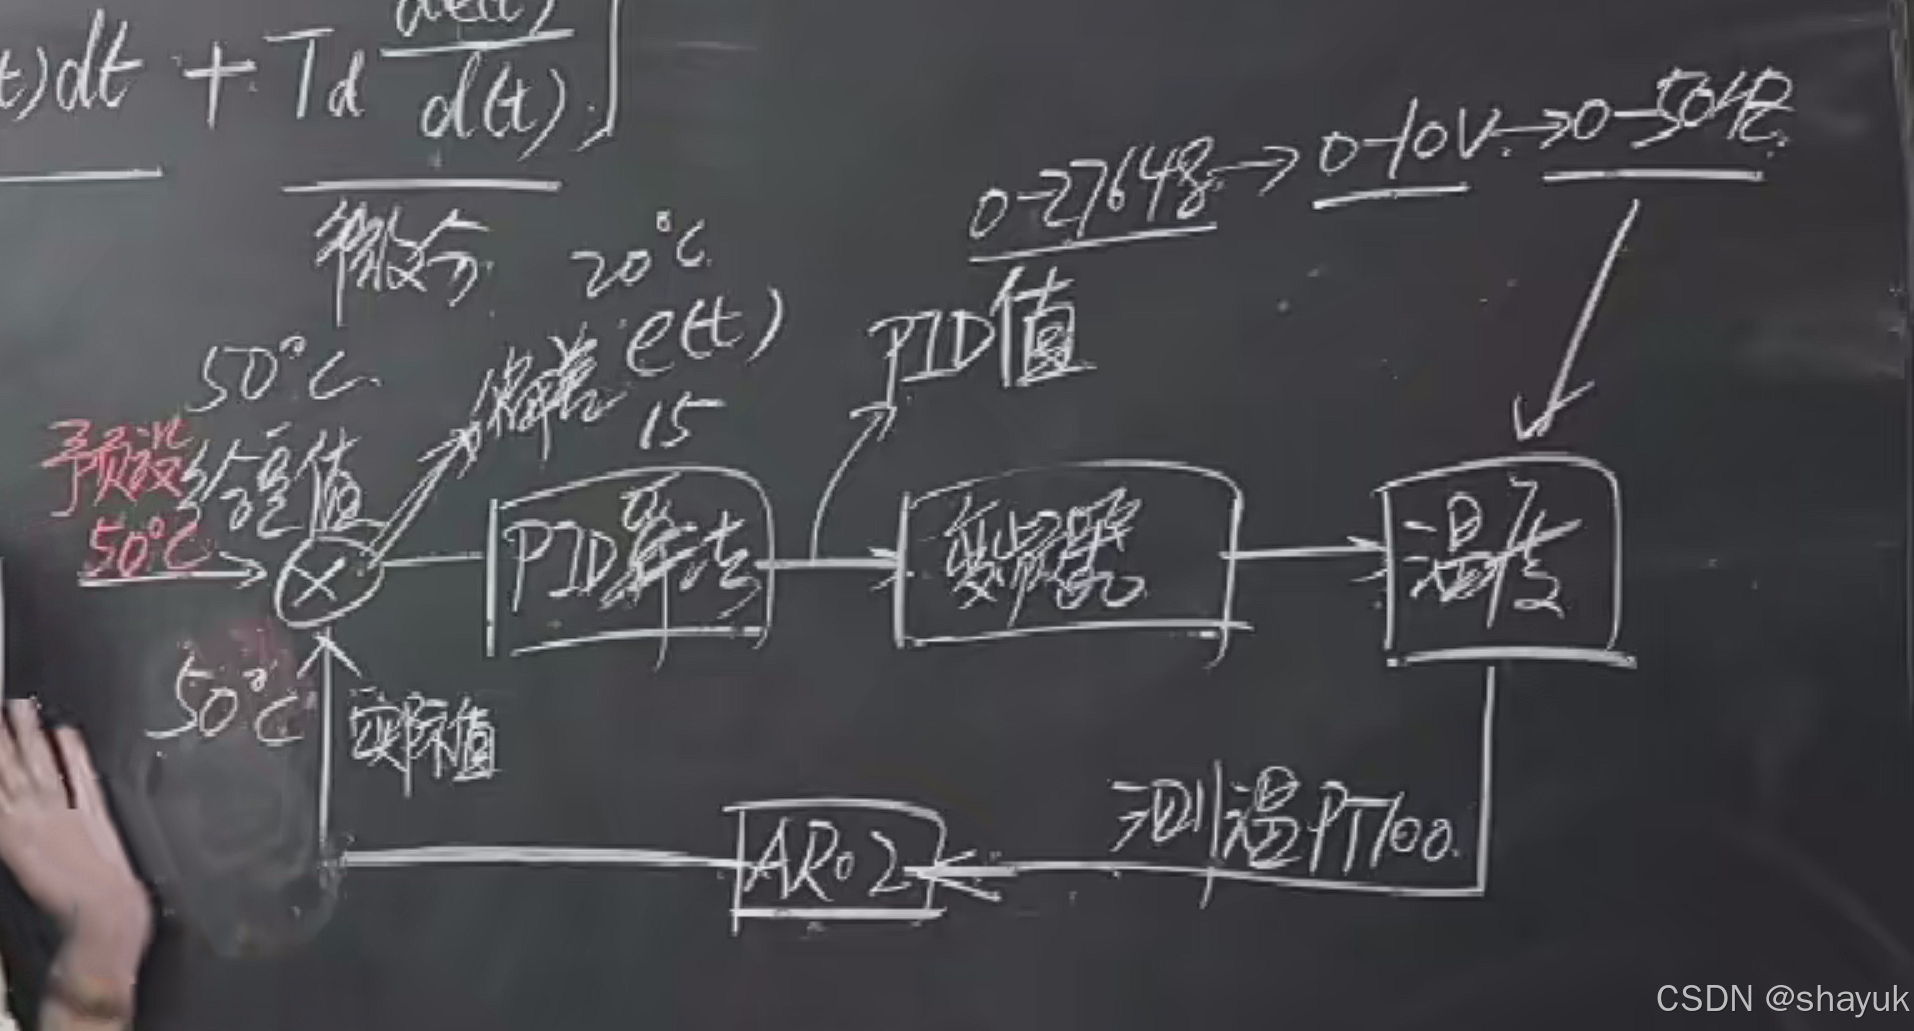 t)dt + Td de(t)/d(t) ]
微分
0-27648 → 0-10V → 0-50HZ
20°C
50°C
偏差 e(t)
PID值
15
预设 给定值
50°C
PID算法
变频器
温度
50°C
实际值
测温PT100
AR02
CSDN @shayuk